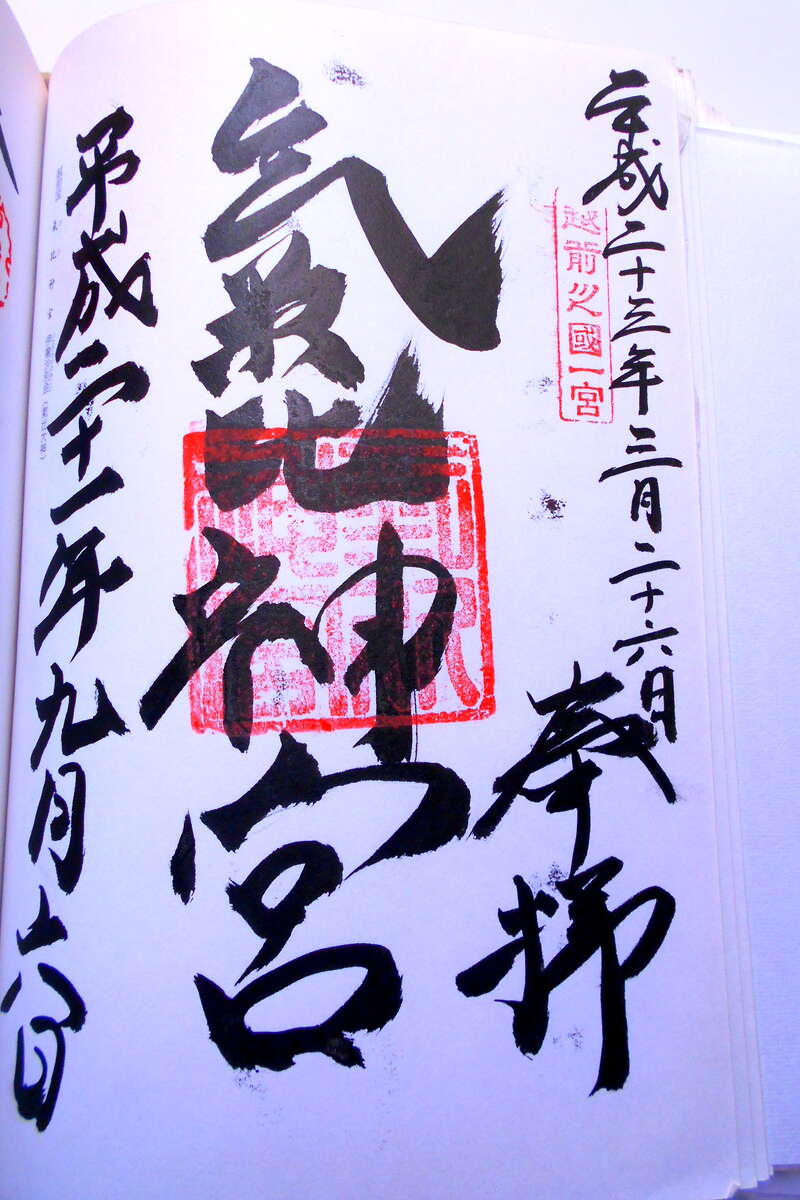 平成二十三年三月二十六日
越前之國一宮
奉拝
氣比神宮
平成二十一年九月六日